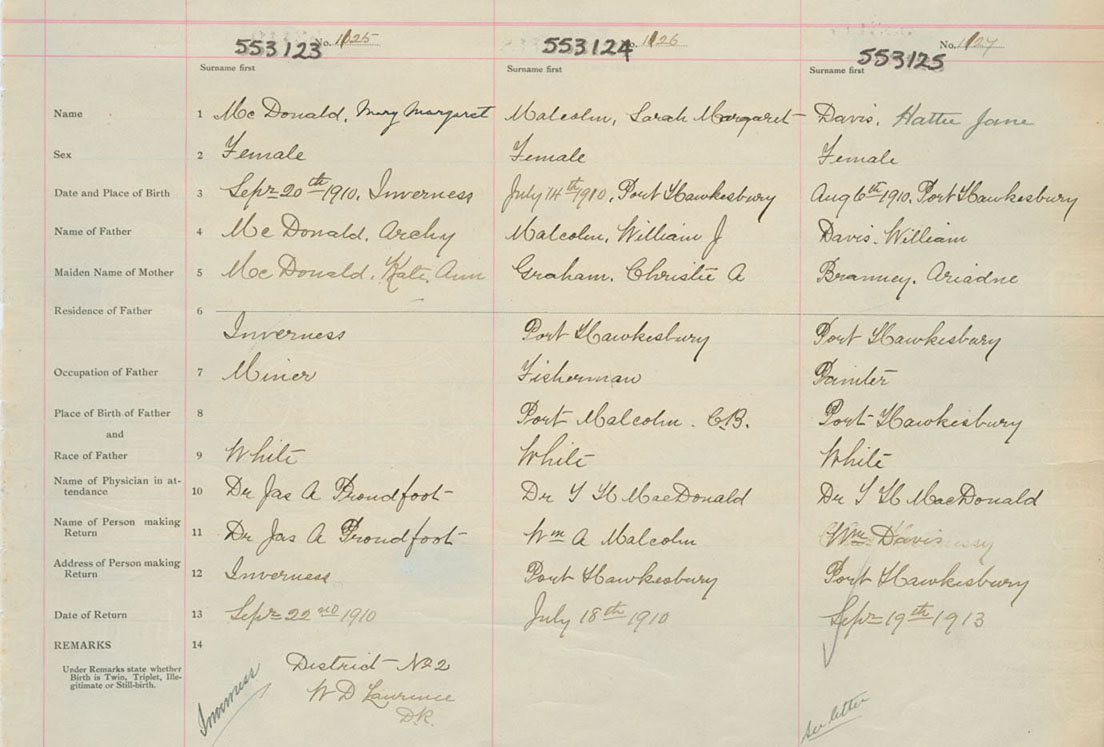 553123 No. 1125 553124 No. 1126 553125 No. 1127
Surname first Surname first Surname first
Name 1 McDonald, Mary Margaret Malcolm, Sarah Margaret Davis, Hattie Jane
Sex 2 Female Female Female
Date and Place of Birth 3 Sepr 20th 1910, Inverness July 14th 1910, Port Hawkesbury Aug 6th 1910, Port Hawkesbury
Name of Father 4 McDonald, Archy Malcolm, William J Davis. William
Maiden Name of Mother 5 McDonald, Kate Ann Graham. Christie A Branney. Ariadne
Residence of Father 6
Inverness Port Hawkesbury Port Hawkesbury
Occupation of Father 7 Miner Fisherman Painter
Place of Birth of Father 8 Port Malcolm. C.B. Port Hawkesbury
and
Race of Father 9 White White White
Name of Physician in at-
tendance 10 Dr Jas A Proudfoot Dr MacDonald Dr MacDonald
Name of Person making
Return 11 Dr Jas A Proudfoot Wm A Malcolm Wm Davis
Address of Person making
Return 12 Inverness Port Hawkesbury Port Hawkesbury
Date of Return 13 Sepr 22nd 1910 July 18th 1910 Sepr 19th 1913
REMARKS 14
Under Remarks state whether
Birth is Twin, Triplet, Ille-
gitimate or Still-birth.
District No 2
W D Lawrence
D.R.
Inverness
See letter